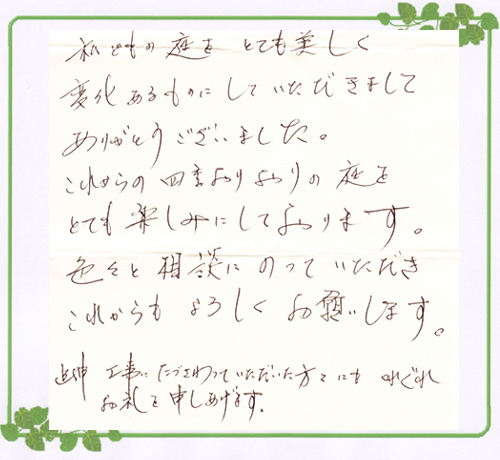 私どもの庭を とても美しく
変化あるものにして いただきまして
ありがとうございました。
これからの四季おりおりの庭を
とても楽しみにしております。
色々と相談にのっていただき
これからもよろしくお願いします。
追伸 工事にたづさわっていただいた方々にも くれぐれ
お礼を申しあげます。